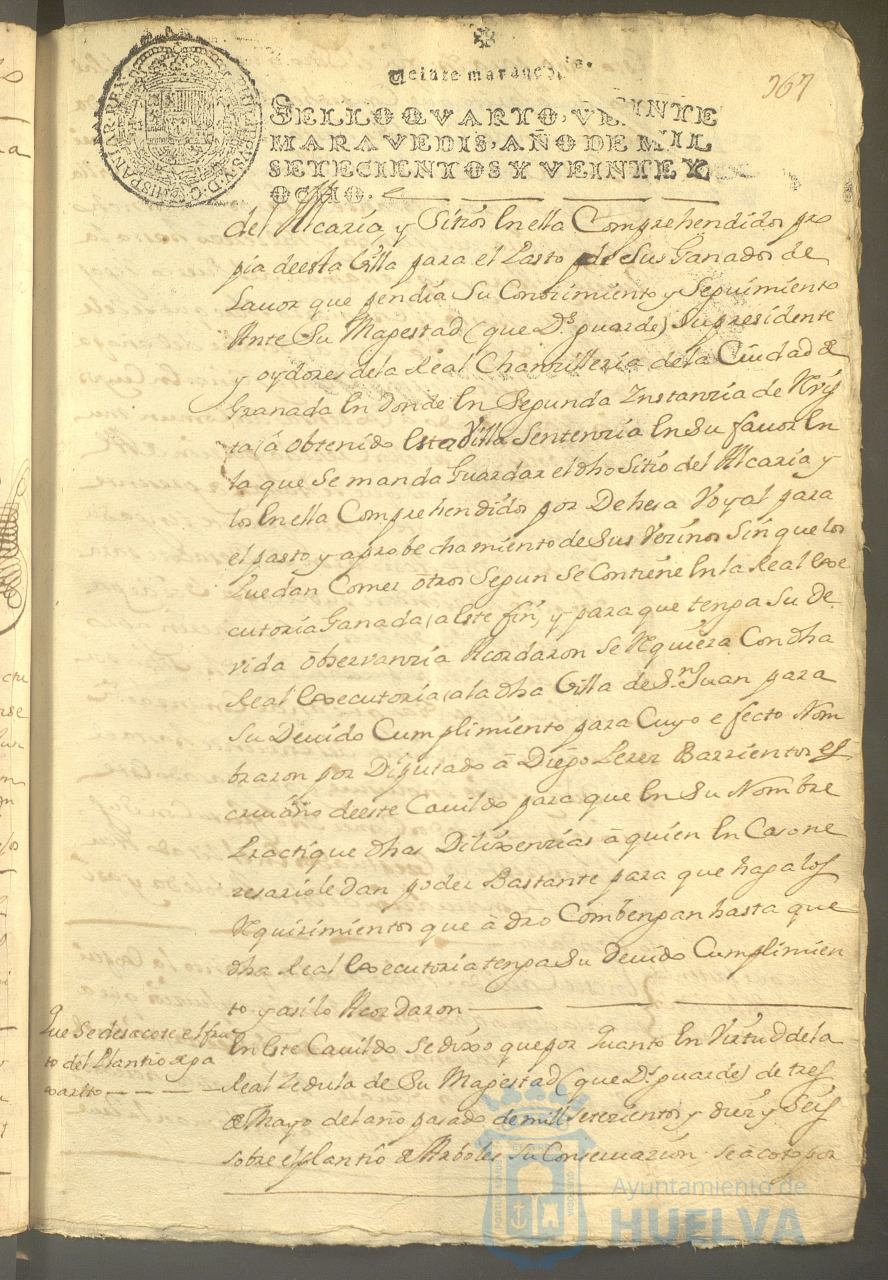 Veinte maravedis.
367
SELLO QVARTO, VEINTE
MARAVEDIS, AÑO DE MIL
SETECIENTOS Y VEINTE Y
OCHO.
PHILIPPVS V D G HISPANIAR REX
del Alcaria y Sitios En ella Comprehendidos pro
pia de esta Villa para el Pasto de Sus Ganados de
Lavor que pendia Su Conozimiento y Seguimiento
Ante Su Magestad (que Ds. guarde) Su presidente
y oydores de la Real Chanzilleria de la Ciudad de
Granada En donde En Segunda Instanzia de Revis
ta, a obtenido Esta Villa Sentenzia En Su favor En
la que Se manda Guardar el dho Sitio del Alcaria y
los En ella Comprehendidos por Dehesa Voyal para
el pasto y aprobechamiento de Sus Vezinos Sin que los
Puedan Comer otros Segun Se Contiene En la Real Exe
cutoria Ganada, a Este fin, y para que tenga Su de
vida observanzia Acordaron Se Requiera Con dha
Real Executoria, a la dha Villa de Sn. Juan para
Su Devido Cumplimiento para Cuyo efecto Nom
braron por Diputado à Diego Perez Barrientos es
crivano de este Cavildo para que En Su Nombre
Practique dhas Dilixenzias à quien En Caso ne
zesario le dan poder Bastante para que haga los
Requirimientos que à dro Combengan hasta que
dha Real Executoria tenga Su Devido Cumplimien
to y asi lo Acordaron
Que Se desacote el fru
to del Plantio
En Este Cavildo Se dixo que por Quanto En Virtud de la
Real Zedula de Su Magestad (que Ds. guarde) de tres
de Mayo del año pasado de mill setezientos y diez y Seis
sobre el plantio de Arboles Su Conservazion se acoto por
Ayuntamiento de
HUELVA